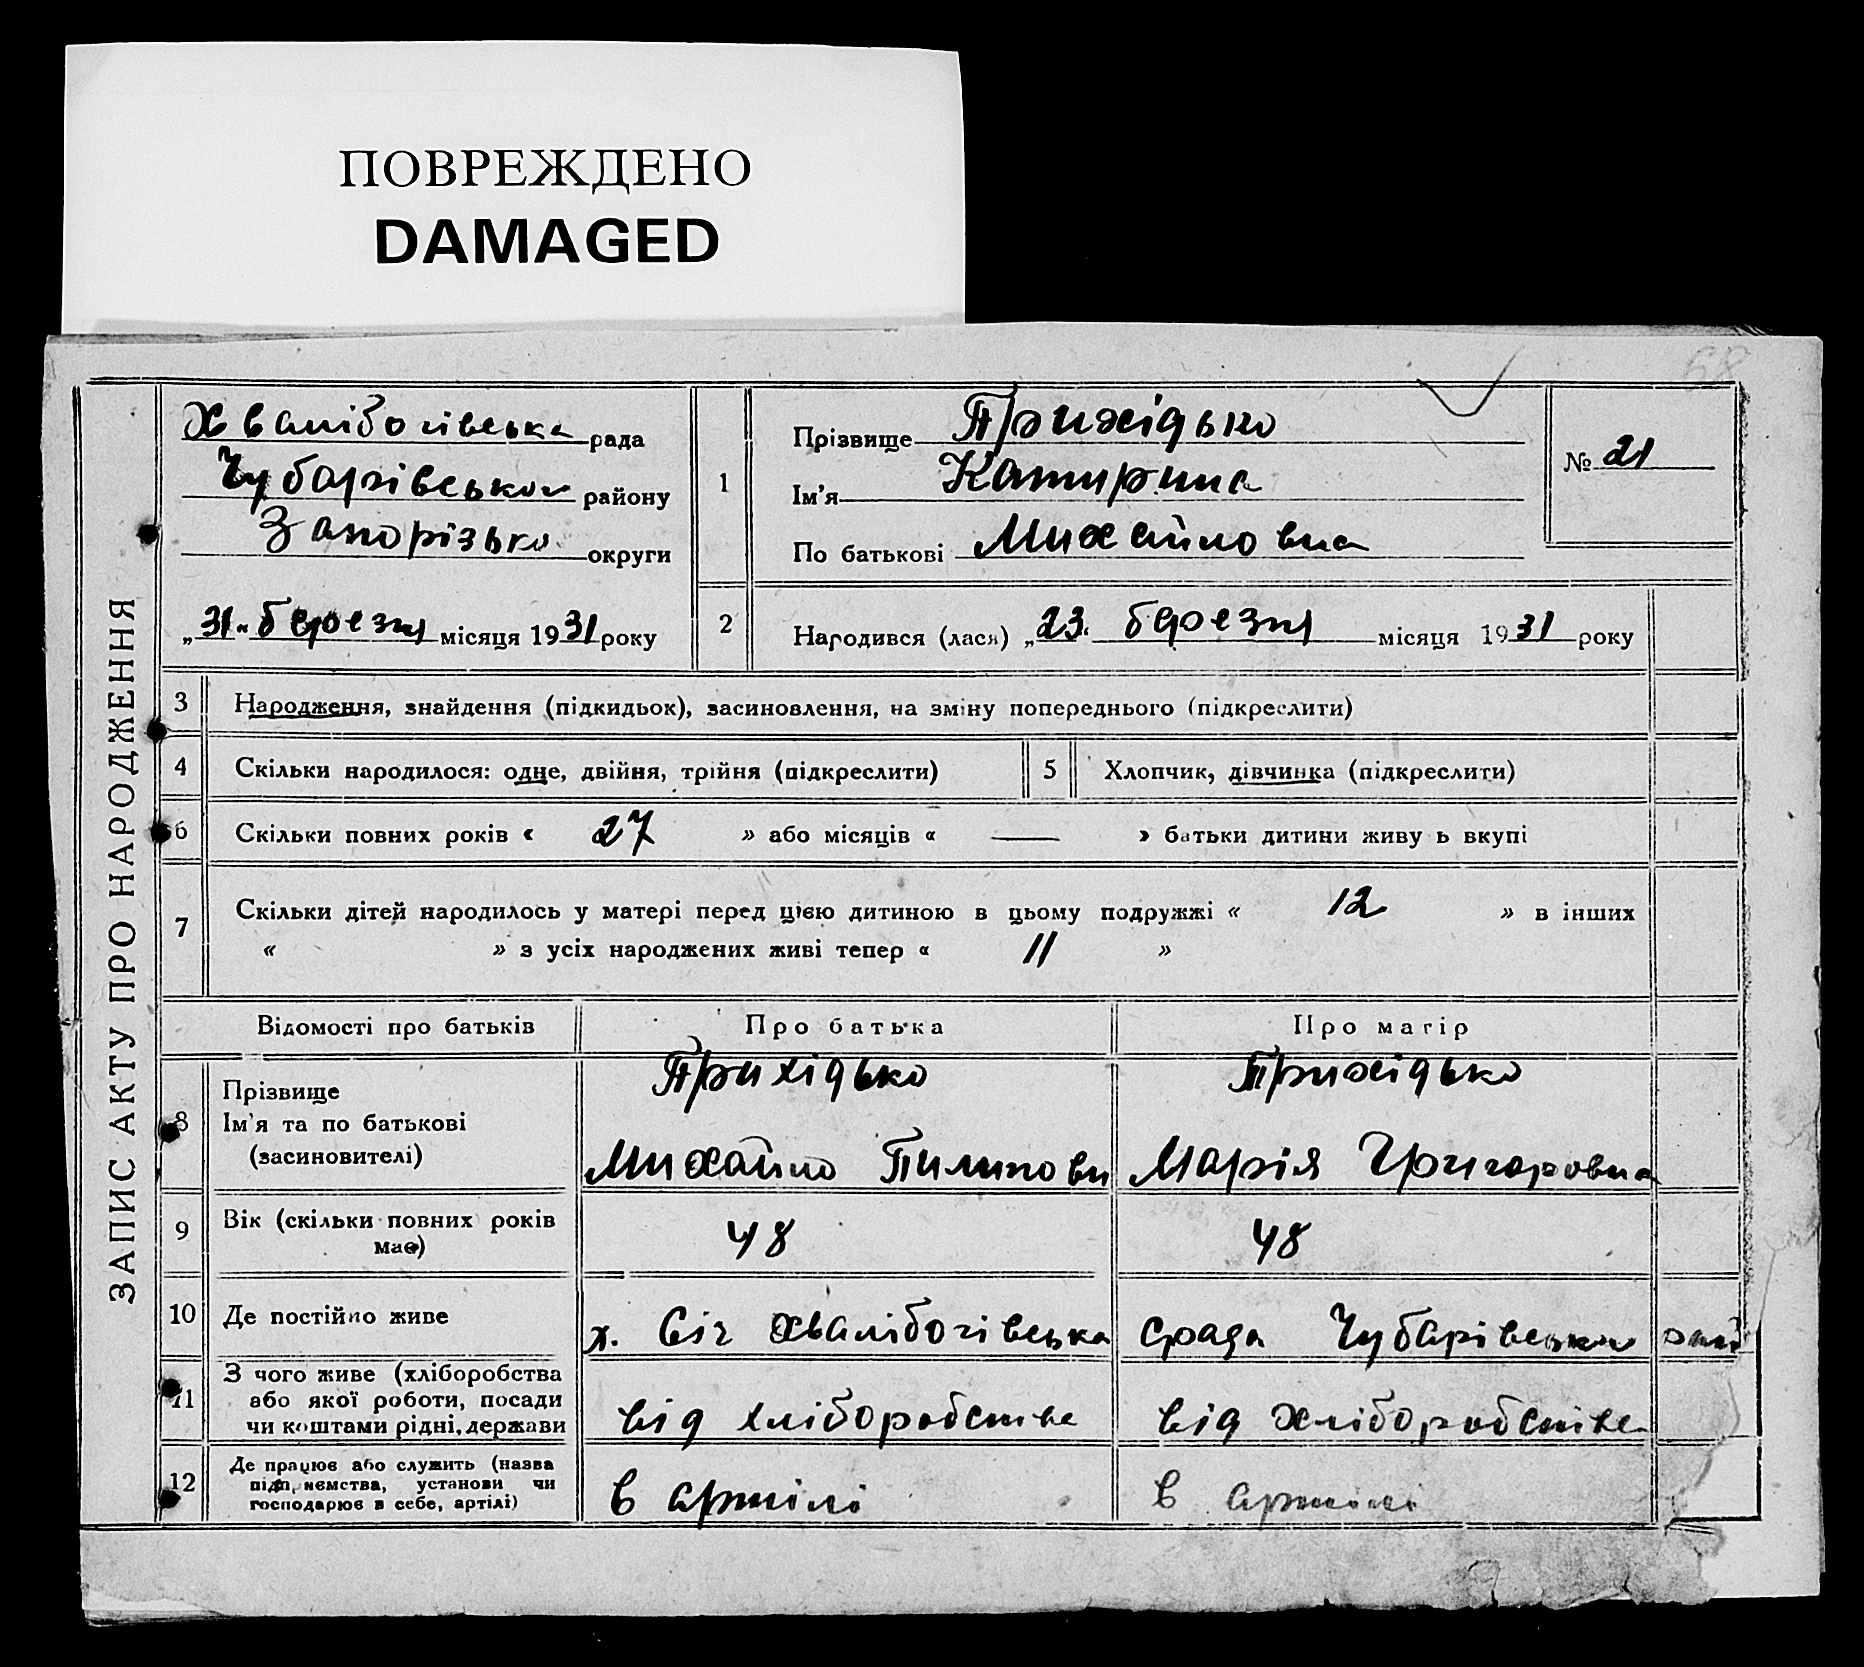 ПОВРЕЖДЕНО
DAMAGED
68
ЗАПИС АКТУ ПРО НАРОДЖЕННЯ
Хвалібогівська рада
Чубарівськой району
Запорізько округи
„31“ березня місяця 1931 року
1
Прізвище Прихідько
Ім'я Катирина
По батькові Михайловна
№ 21
2
Народився (лася) „23“ березня місяця 1931 року
3 Народження, знайдення (підкидьок), засиновлення, на зміну попереднього (підкреслити)
4 Скільки народилося: одне, двійня, трійня (підкреслити)
5 Хлопчик, дівчинка (підкреслити)
6 Скільки повних років « 27 » або місяців « — » батьки дитини живу ь вкупі
7 Скільки дітей народилось у матері перед цією дитиною в цьому подружжі « 12 » в інших
« » з усіх народжених живі тепер « 11 »
Відомості про батьків Про батька Про матір
8 Прізвище
Ім'я та по батькові
(засиновителі)
Прихідько
Михайло Пилипови
Прихідько
Марія Григоровна
9 Вік (скільки повних років
має)
48 48
10 Де постійно живе х. Січ Хвалібогівська срада Чубарівськой рай
11 З чого живе (хліборобства
або якої роботи, посади
чи коштами рідні, держави
від хліборобства від хліборобства
12 Де працює або служить (назва
підприємства, установи чи
господарює в себе, артілі)
в артілі в артілі